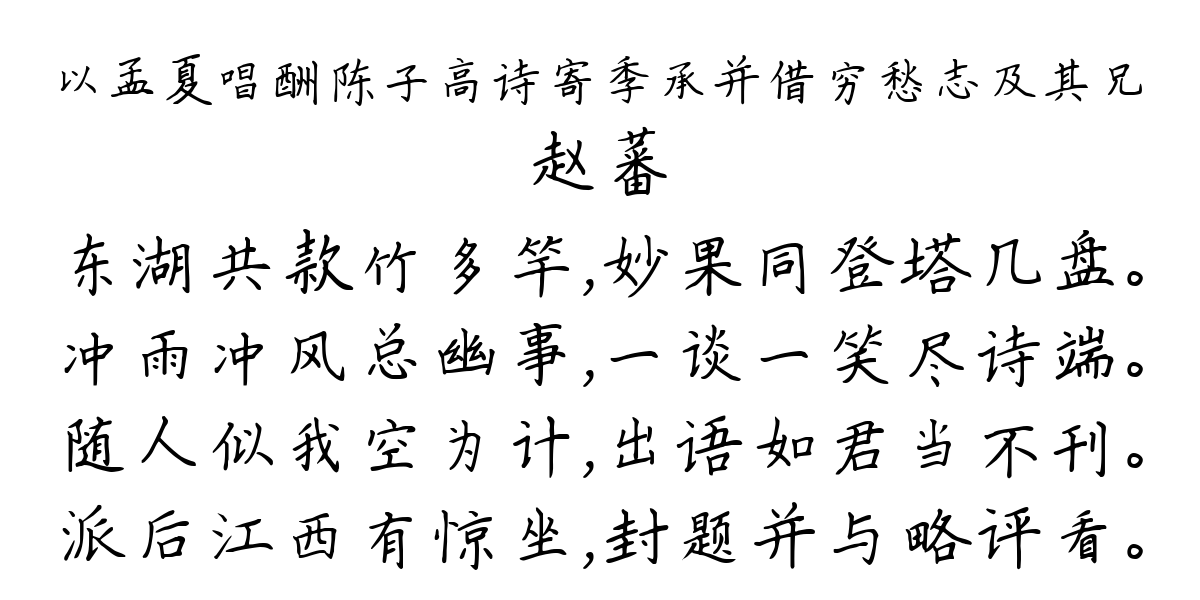 以孟夏唱酬陈子高诗寄季承并借穷愁志及其兄
赵蕃
东湖共款竹多竿,妙果同登塔几盘。
冲雨冲风总幽事,一谈一笑尽诗端。
随人似我空为计,出语如君当不刊。
派后江西有惊坐,封题并与略评看。